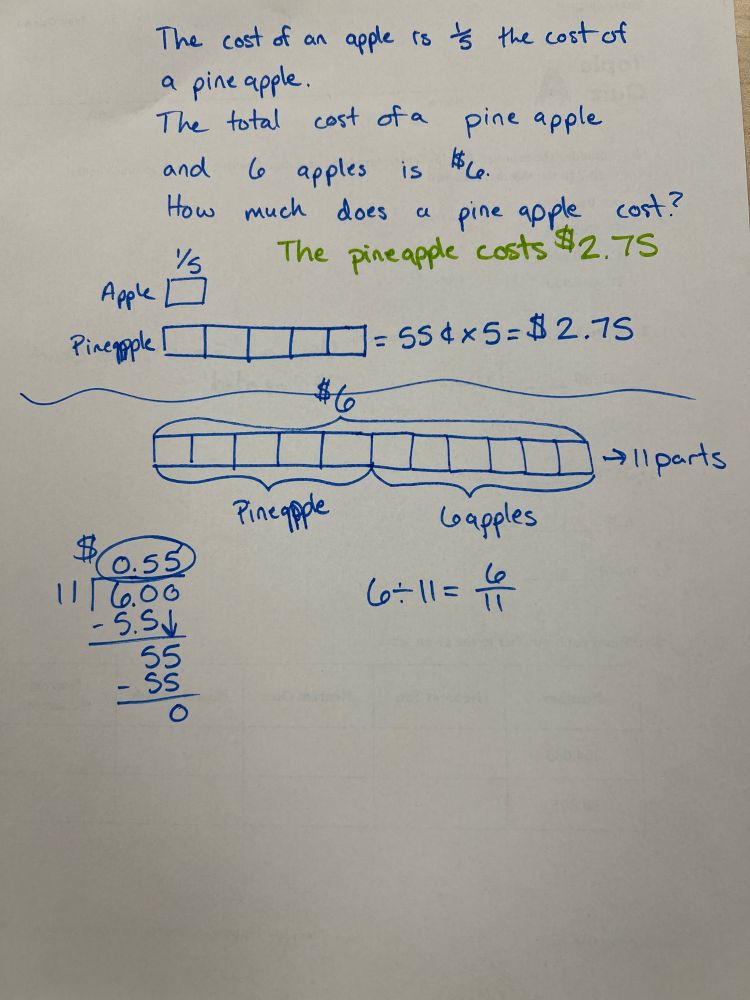 The cost of an apple is 1/5 the cost of
a pineapple.
The total cost of a pineapple
and 6 apples is $6.
How much does a pineapple cost?
The pineapple costs $2.75
1/5
Apple
Pineapple = 55¢ x 5 = $2.75
$6
→ 11 parts
Pineapple 6 apples
$ 0.55
11 6.00
- 5.5↓
55
- 55
0
6 ÷ 11 = 6/11